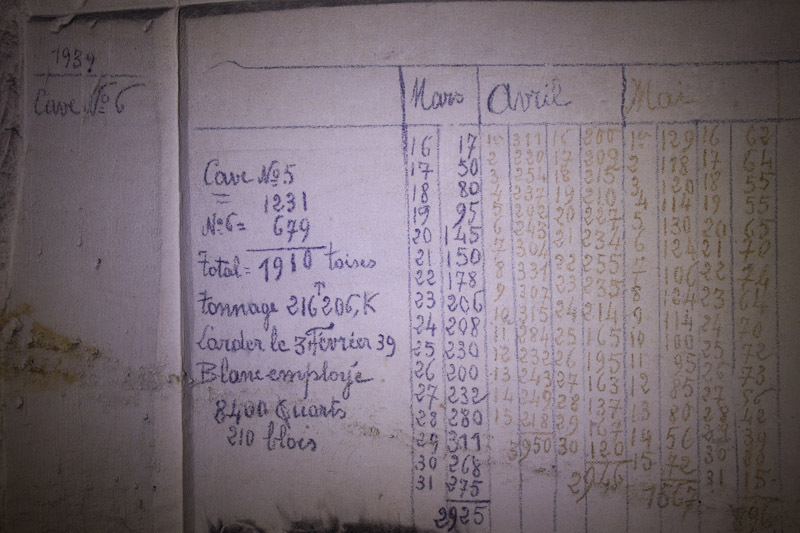 1939
Cave No 6
Cave No 5
1231
No 6 = 679
Total = 1910 toises
Tonnage 216206, K
Larder le 3 Février 39
Blanc employé
8400 Quarts
210 blois
Mars Avril Mai
16 17
17 50
18 80
19 95
20 145
21 150
22 178
23 206
24 208
25 230
26 200
27 232
28 280
29 311
30 268
31 275
2925
311 16 200 129 16 62
2 220 17 209 2 118 17 64
3 254 18 215 3 120 18 55
237 19 210 4 114 19 55
20 227 5 130 20 65
6 243 21 234 6 124 21 70
7 304 22 255 7 106 22 74
8 331 23 235 8 124 23 64
9 307 24 214 9 114 24
10 315 25 165 10 100 25 72
11 284 26 195 11 95 26 73
12 232 27 163 12 85 27 56
13 243 28 137 13 80 28 42
14 249 29 167 14 56
15 218 30 120 15 72 30
3950 31 15